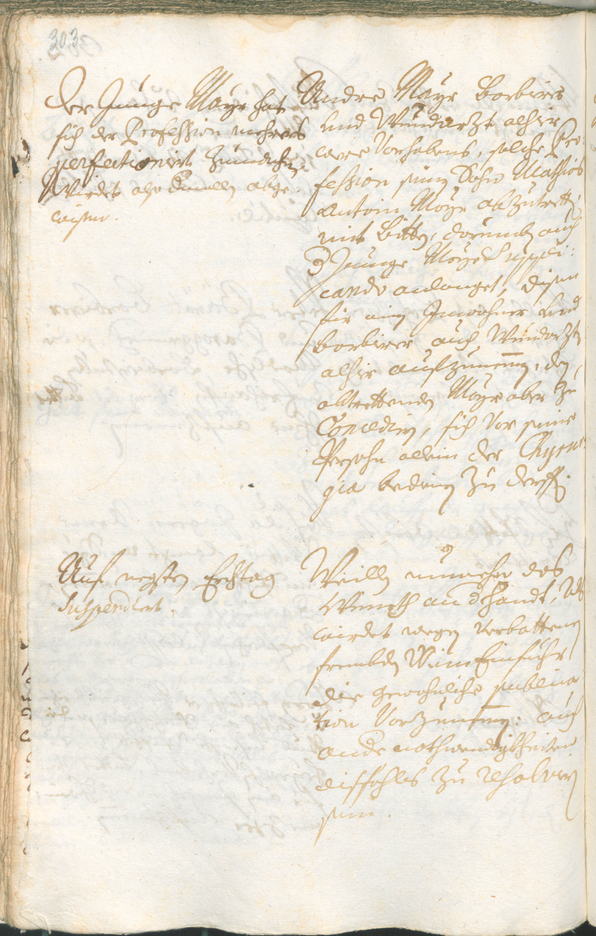 303
Der Junge Mayr hat
sich der Profession mehrers
perfectioniert zumachen,
Wirdet also damallen abge-
wisen.
Andre Mayr Barbierer
und Wundarzt alhier
were Vorhabens, solche Pro-
fession seinem Sohn Mathias
Antoni Mayr abzutretten,
mit Bitten, darumben auch
der Junge Mayr Suppli-
cando anlanget, disen
für ainen Inwohner und
Barbierer auch Wundarzten
alhier aufzunemmen, dem
abtrettenden Mayr aber zu
Concedirn, sich vor seine
Persohn allein der Chyrur-
gia bedienen zu derffen.
Auf negsten Erchtag
Suspendiert.
Weillen nunmehr das
Wimeth an der Handt, Als
wirdet wegen Verbottener
frembden Wein Einfuhr
die gewohnliche publica-
tion Vorzunemmen, auch
andere nothwendigkheiten
dissfahls zu resolviern
sein.